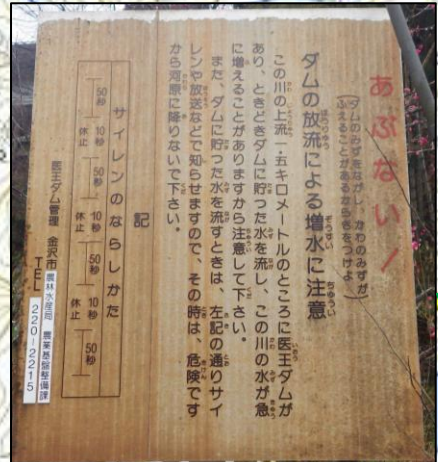 あぶない！
（ダムのみずをながし、かわのみずが
ふえることがあるからきをつけよ）
ダムの放流による増水に注意
この川の上流一・五キロメートルのところに医王ダムが
あり、ときどきダムに貯った水を流し、この川の水が急
に増えることがありますから注意して下さい。
また、ダムに貯った水を流すときは、左記の通りサイ
レンや放送などで知らせますので、その時は、危険です
から河原に降りないで下さい。
記
サイレンのならしかた
50秒 10秒 50秒 10秒 50秒 10秒 50秒
休止 休止 休止
医王ダム管理 金沢市農林水産局 農業基盤整備課
TEL 220-2215